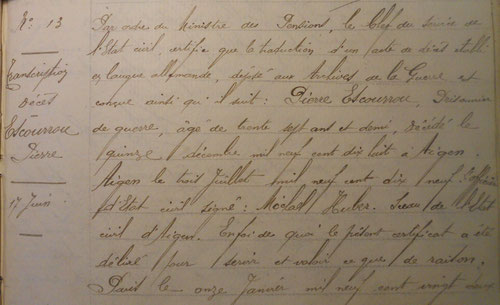 N° 13
Transcription
Décès
Escourrou
Pierre
17 Juin
Par ordre du Ministre des Pensions, le Chef du Service de
l'Etat civil, certifie que la traduction d'un acte de décès établi
en langue allemande, déposé aux Archives de la Guerre et
conçue ainsi qu'il suit: Pierre Escourrou, Prisonnier
de guerre, âgé de trente sept ans et demi, décédé le
quinze décembre mil neuf cent dix huit à Aigen.
Aigen le trois Juillet mil neuf cent dix neuf. L'officier
d'Etat civil signé: Huber. Sceau de l'Etat
civil d'Aigen. En foi de quoi le présent certificat a été
délivré pour servir et valoir ce que de raison.
Paris le onze Janvier mil neuf cent vingt deux